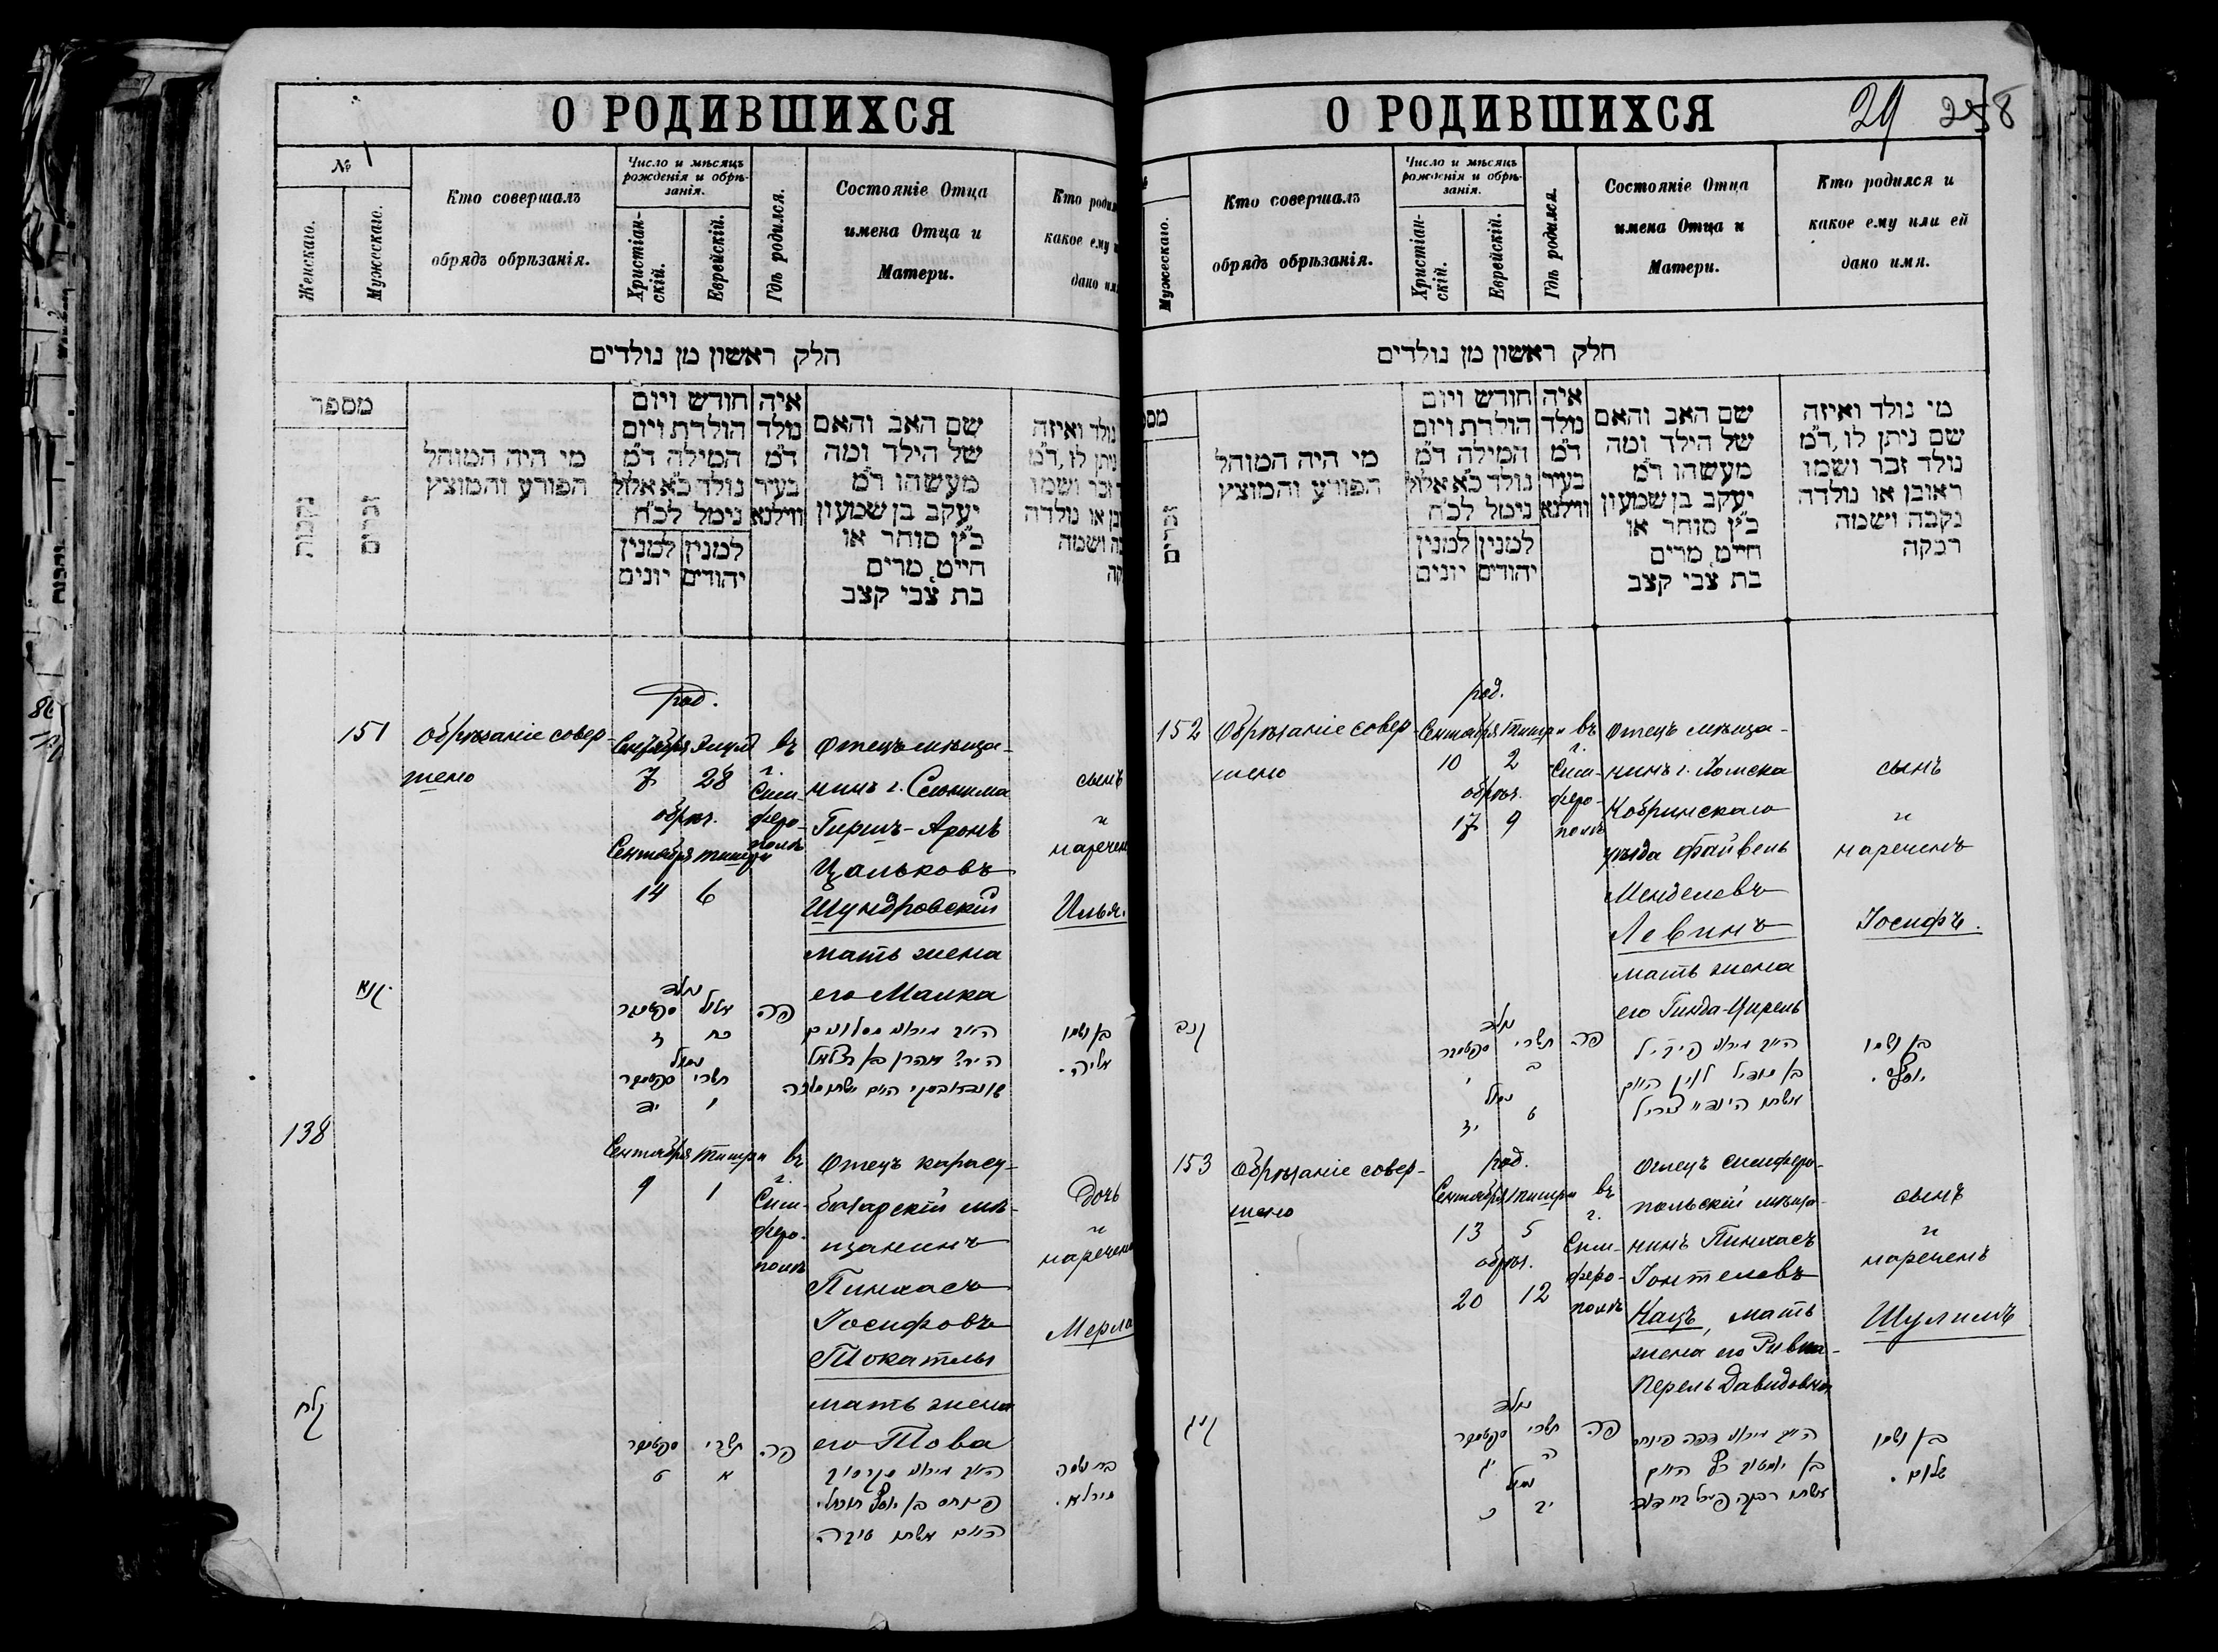 О РОДИВШИХСЯ
№
Женскаго.
Мужескаго.
Кто совершалъ
обрядъ обрѣзанія.
Число и мѣсяцъ
рожденія и обрѣ-
занія.
Христіан-
скій.
Еврейскій.
Гдѣ родился.
Состояніе Отца
имена Отца и
Матери.
Кто роди
какое ему
дано им
חלק ראשון מן נולדים
מספר
נקבות
זכרים
מי היה המוהל
הפורע והמוצץ
חודש ויום
הולדת ויום
המילה ד״מ
נולד כ״א אלול
נימל לכ״ח
למנין למנין
יהודים יונים
איה
נולד
ד״מ
בעיר
ווילנא
שם האב והאם
של הילד ומה
מעשהו ד״מ
יעקב בן שמעון
כ״ץ סוחר או
חייט מרים
בת צבי קצב
נולד ואיזה
ניתן לו, ד״מ
זכר ושמו
או נולדה
ושמה
род.
151 Обрѣзаніе совер-
шено
Сентября
7 28
обрѣз.
Сентября Тишри
14 6
въ
г.
Сим-
феро-
полѣ
Отецъ мѣща-
нинъ г. Слонима
Гиршъ-Аронъ
Цальковъ
Шундровскій
мать жена
его Малка
сынъ
и
наречен
Илья.
קנא
נולד
ספטמבר אלול
ז כח
נימול
ספטמבר תשרי
יד ו
פה
בן ושמו
אליה.
138
Сентября Тишри
9 1
въ
г.
Сим-
феро-
полѣ
Отецъ карасу-
базарскій мѣ-
щанинъ
Пинхасъ
Іосифовъ
Токатлы
мать жена
его Това
Дочь
и
наречена
Мерла
קלח
ספטמבר תשרי
ט א
פה
פינחס בן יוסף
בת ושמה
מירלא.
О РОДИВШИХСЯ
29 258
Мужескаго.
Кто совершалъ
обрядъ обрѣзанія.
Число и мѣсяцъ
рожденія и обрѣ-
занія.
Христіан-
скій.
Еврейскій.
Гдѣ родился.
Состояніе Отца
имена Отца и
Матери.
Кто родился и
какое ему или ей
дано имя.
חלק ראשון מן נולדים
זכרים
מי היה המוהל
הפורע והמוצץ
חודש ויום
הולדת ויום
המילה ד״מ
נולד כ״א אלול
נימל לכ״ח
למנין למנין
יהודים יונים
איה
נולד
ד״מ
בעיר
ווילנא
שם האב והאם
של הילד ומה
מעשהו ד״מ
יעקב בן שמעון
כ״ץ סוחר או
חייט מרים
בת צבי קצב
מי נולד ואיזה
שם ניתן לו, ד״מ
נולד זכר ושמו
ראובן או נולדה
נקבה ושמה
רבקה
род.
152 Обрѣзаніе совер-
шено
Сентября Тишри
10 2
обрѣз.
17 9
въ
г.
Сим-
феро-
полѣ
Отецъ мѣща-
нинъ г. Хомска
Кобринскаго
уѣзда Файвель
Менделевъ
Левинъ
мать жена
его Гинда-Цирель
сынъ
и
нареченъ
Іосифъ.
קנב
נולד
ספטמבר תשרי
י ב
נימול
יז ט
פה
בן ושמו
יוסף.
153 Обрѣзаніе совер-
шено
род.
Сентября Тишри
13 5
обрѣз.
20 12
въ
г.
Сим-
феро-
полѣ
Отецъ симферо-
польскій мѣща-
нинъ Пинхасъ
Іонтелевъ
Кацъ, мать
жена его Ривка-
Перель Давидовна
сынъ
и
нареченъ
Шулимъ
קנג
נולד
ספטמבר תשרי
יג ה
נימול
כ יב
פה
בן ושמו
שלום.